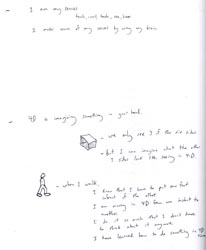 - I am my senses
touch, smell, taste, see, hear
I make sense of my senses by using my brain
- 4D is imagining something - your head.
- we only see 3 of the six sides
- but I can imagine what the other
3 sides look like seeing in 4D.
- when I walk,
I know that I have to put one foot
in front of the other
I am moving in 4D from one instant to
another
I do it so much that I don't have
to think about it anymore
I have learned how to do something in 4D